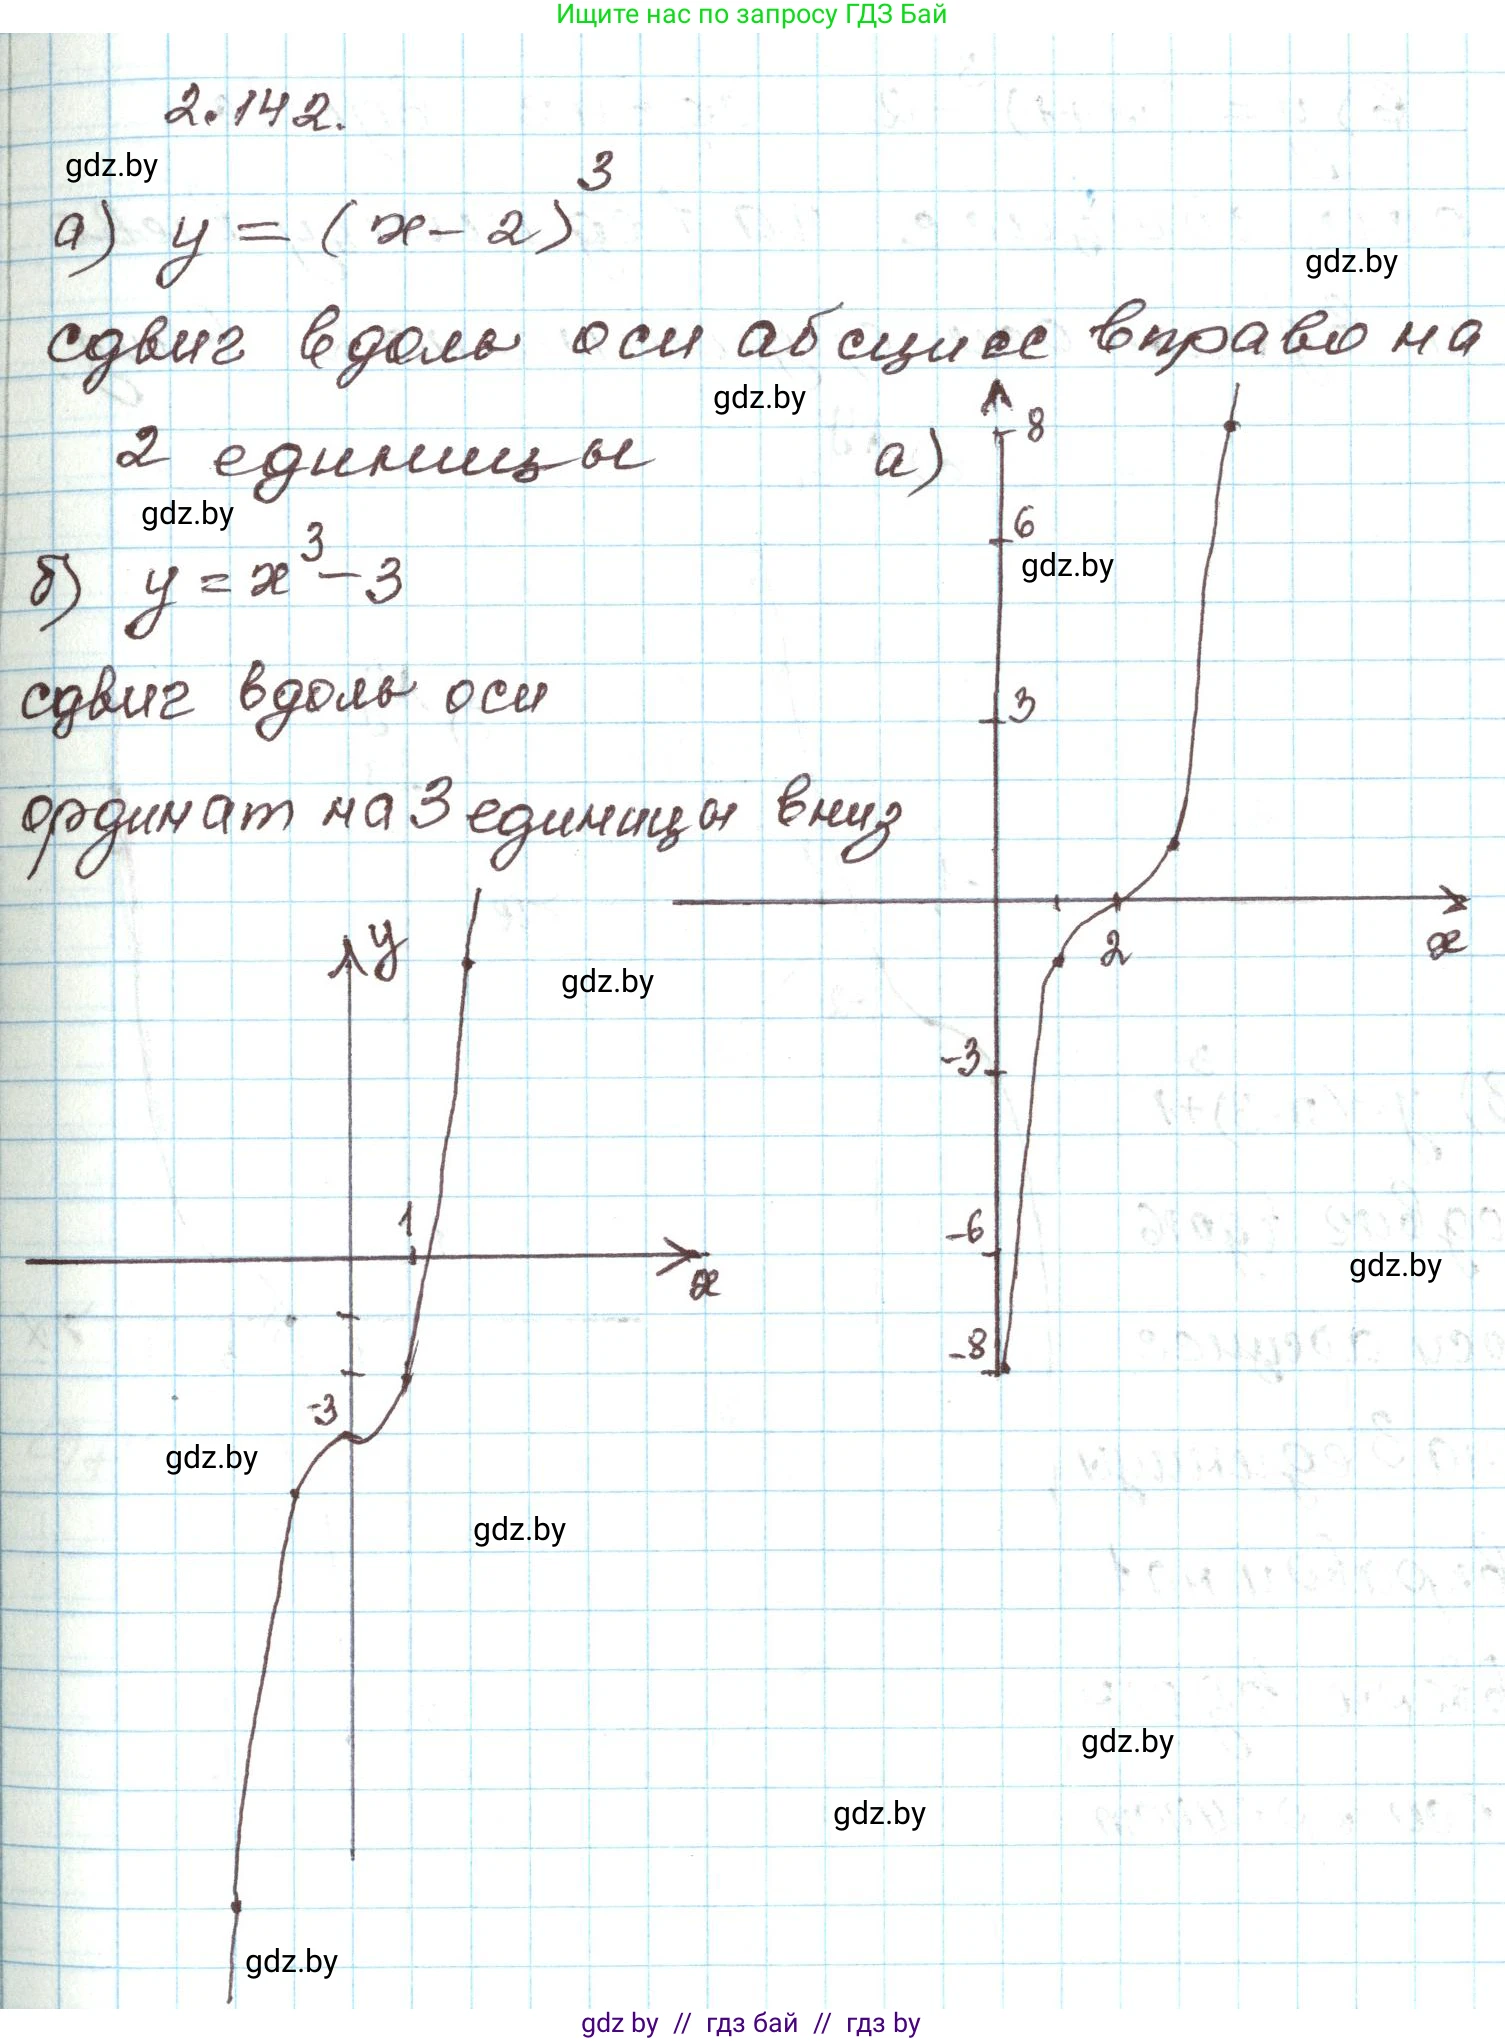 Ищите нас по запросу ГДЗ Бай
2.142.
gdz.by
а) y = (x - 2)³
gdz.by
сдвиг вдоль оси абсцисс вправо на
gdz.by
2 единицы
а)
8
gdz.by
6
gdz.by
б) y = x³ - 3
сдвиг вдоль оси
3
ординат на 3 единицы вниз
y
gdz.by
2
x
-3
1
-6
x
gdz.by
-8
-3
gdz.by
gdz.by
gdz.by
gdz.by
gdz.by
gdz.by // гдз бай // гдз by